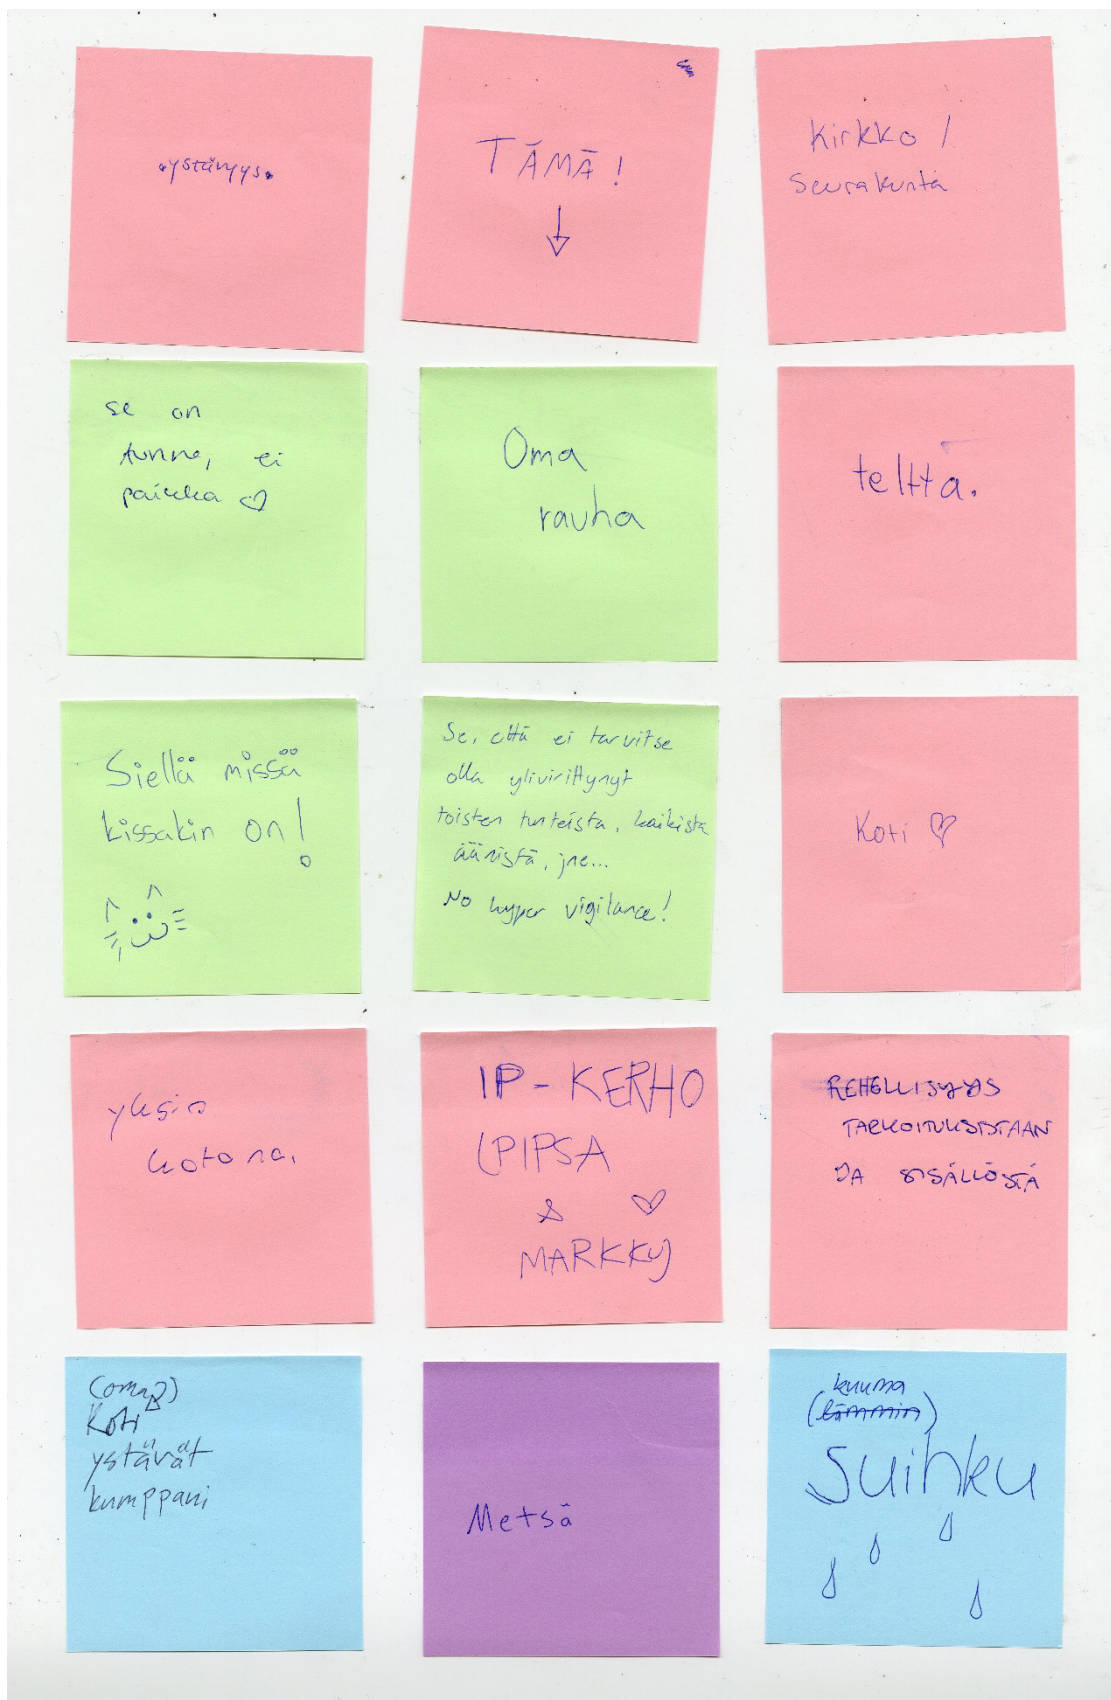 •ystävyys•
TÄMÄ!
Kirkko /
Seurakunta
se on
tunne, ei
paikka ♡
Oma
rauha
teltta.
Siellä missä
kissakin on!
Se, että ei tarvitse
olla ylivirittynyt
toisten tunteista, kaikista
äänistä, jne...
No hyper vigilance!
Koti ♡
yksin
kotona.
IP-KERHO
(PIPSA
& ♡
MARKKU)
REHELLISYYS
TARKOITUKSISTAAN
JA SISÄLLÖSTÄ
(oma)
Koti
ystävät
kumppani
Metsä
kuuma
(lämmin)
Suihku